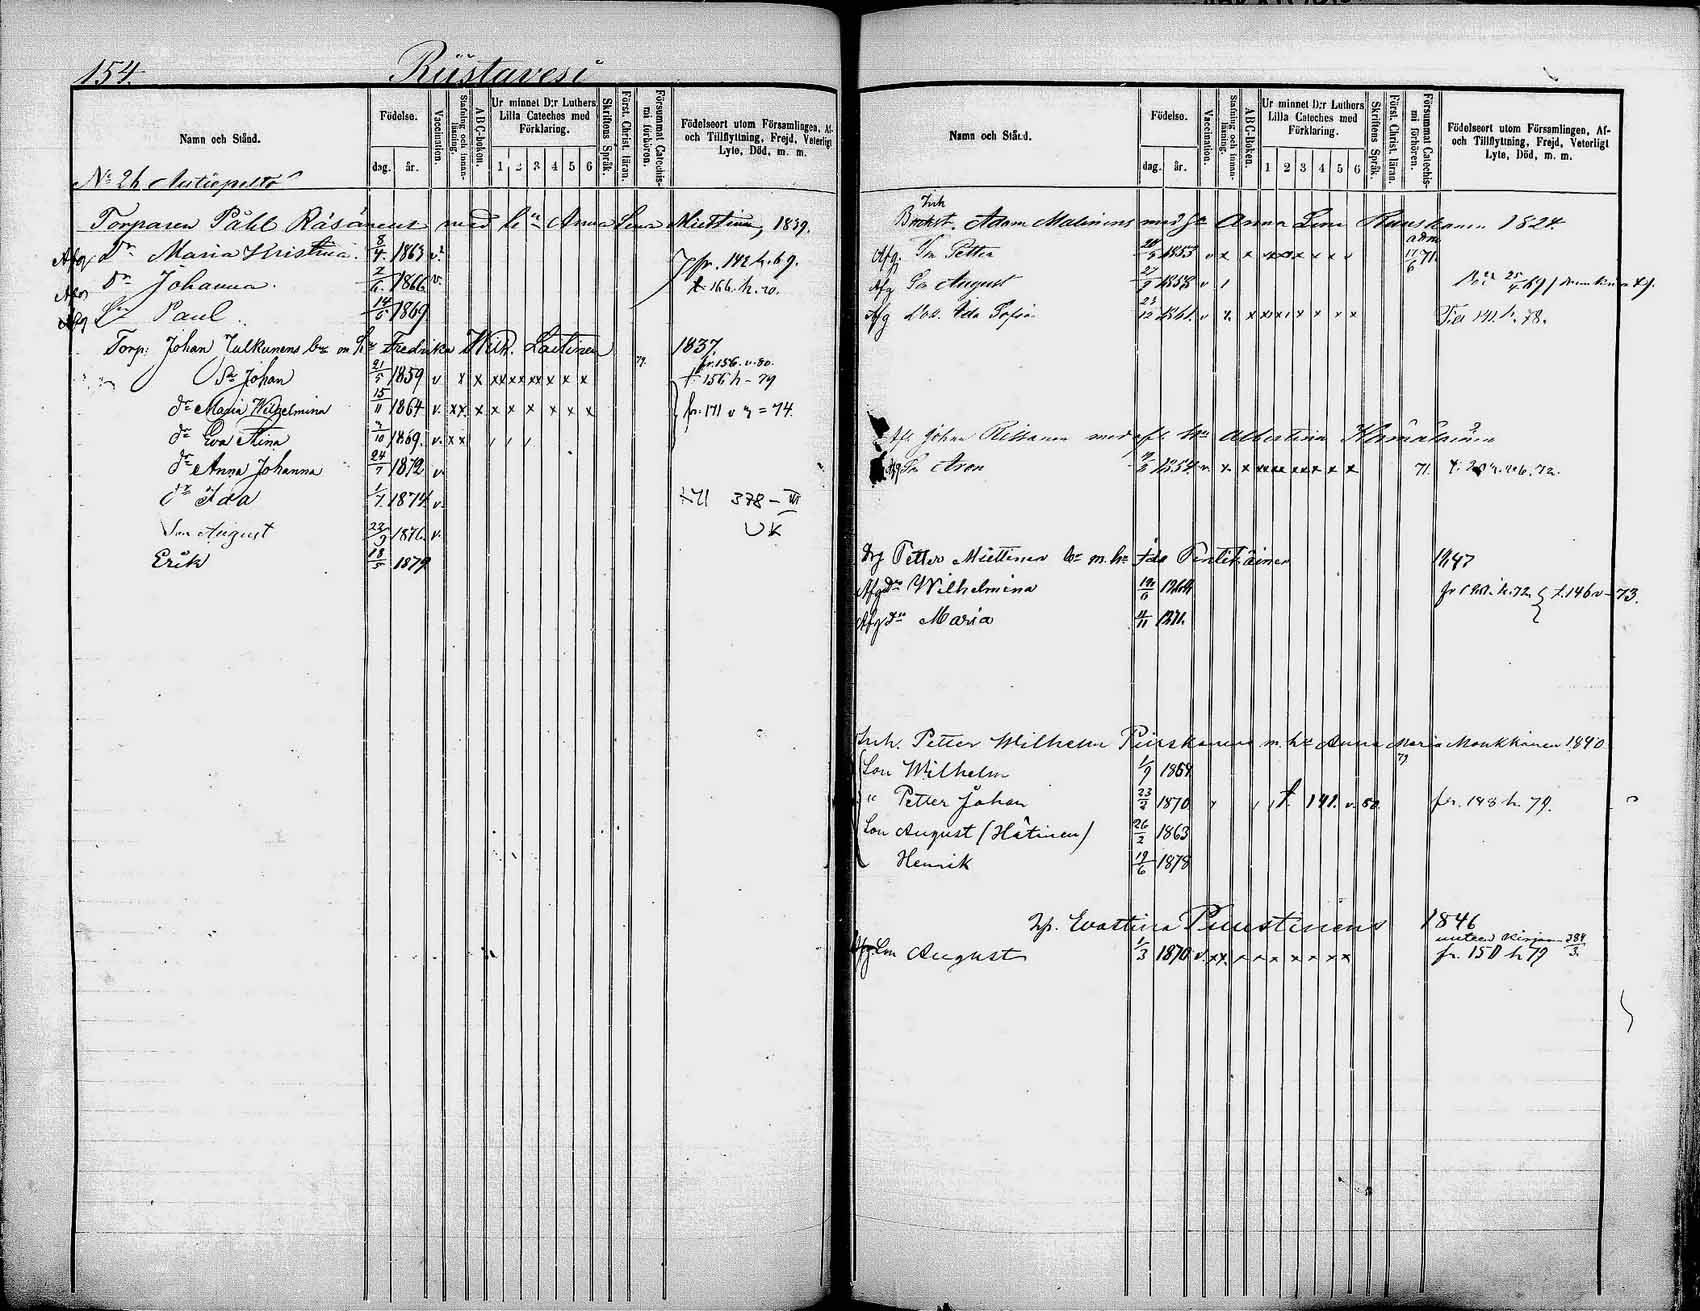 154. Riistavesi
Namn och Stånd. Födelse. dag. år. Vaccination. Stafning och innanläsning. A B C-boken. Ur minnet D:r Luthers Lilla Cateches med Förklaring. 1 2 3 4 5 6 Skriftens Språk. Först. Christ. läran. Försummat Catechismi förhören. Födelseort utom Församlingen, Af- och Tillflyttning, Frejd, Veterligt Lyte, Död, m. m.
Torparen Påhl Räsänens med hu Anna Lena Miettinen, 1839.
Afg Dr Maria Kristina. 8/4. 1863 v. fr. 142 h. 69.
Afg Dr Johanna. 1866 v. t. 166. h.
Afg Sn Paul. 14/5 1869
Torp: Johan Julkunens br m hu Fredrika Wilh. Laitinen 1837
79. fr. 156. v. 80.
Sn Johan 21/5 1859 v. x x xx xx xx x x x t. 156 h - 79
dr Maria Wilhelmina 15/11 1864 v. xx. x x x x x x x fr. 171 v = 74.
dr Eva Stina /10 1869. v. xx
dr Anna Johanna 24/7 1872 v.
dr Ida 1/7. 1874. v. 378 - VI
Son August 23/9 1876. v. UK
Erik 18/5 1879
Namn och Stånd. Födelse. dag. år. Vaccination. Stafning och innanläsning. A B C-boken. Ur minnet D:r Luthers Lilla Cateches med Förklaring. 1 2 3 4 5 6 Skriftens Språk. Först. Christ. läran. Försummat Catechismi förhören. Födelseort utom Församlingen, Af- och Tillflyttning, Frejd, Veterligt Lyte, Död, m. m.
Inh
Adam Malinens med hu Anna Lena 1824.
adm
Afg. Sn Petter 1853 v x x xx x x x x 17/6 71.
Afg Sn August 27/9 1858 v
Afg Dot. Ida Sofia 23/12 1861. v x. x x x x x x x Till 141. h. 78.
Johan Rissanen med hu Albertina
Afg Sn Aron 1854 v. x x xx xx x x x 71.
Petter Miettinen br m. hu Ida Pentikäinen 1847
Afg dr Wilhelmina 1864 t. 146 v - 73.
Afg dr Maria 4/11 1871.
Inh. Petter Wilhelm Piirskanens m. hu Anna Maria Monkkonen 1840
79
Son Wilhelm 1/9 1868
" Petter Johan 23/2 1870 t. 141. v. 80. fr. 148 h. 79.
Son August (Hätinen) 26/2 1863
Henrik 19/6 1878
Evastina Puustinens 1846
Afg Son August 1/3 1870 v. xx. x x x x x x fr. 150 h 79 384/3.